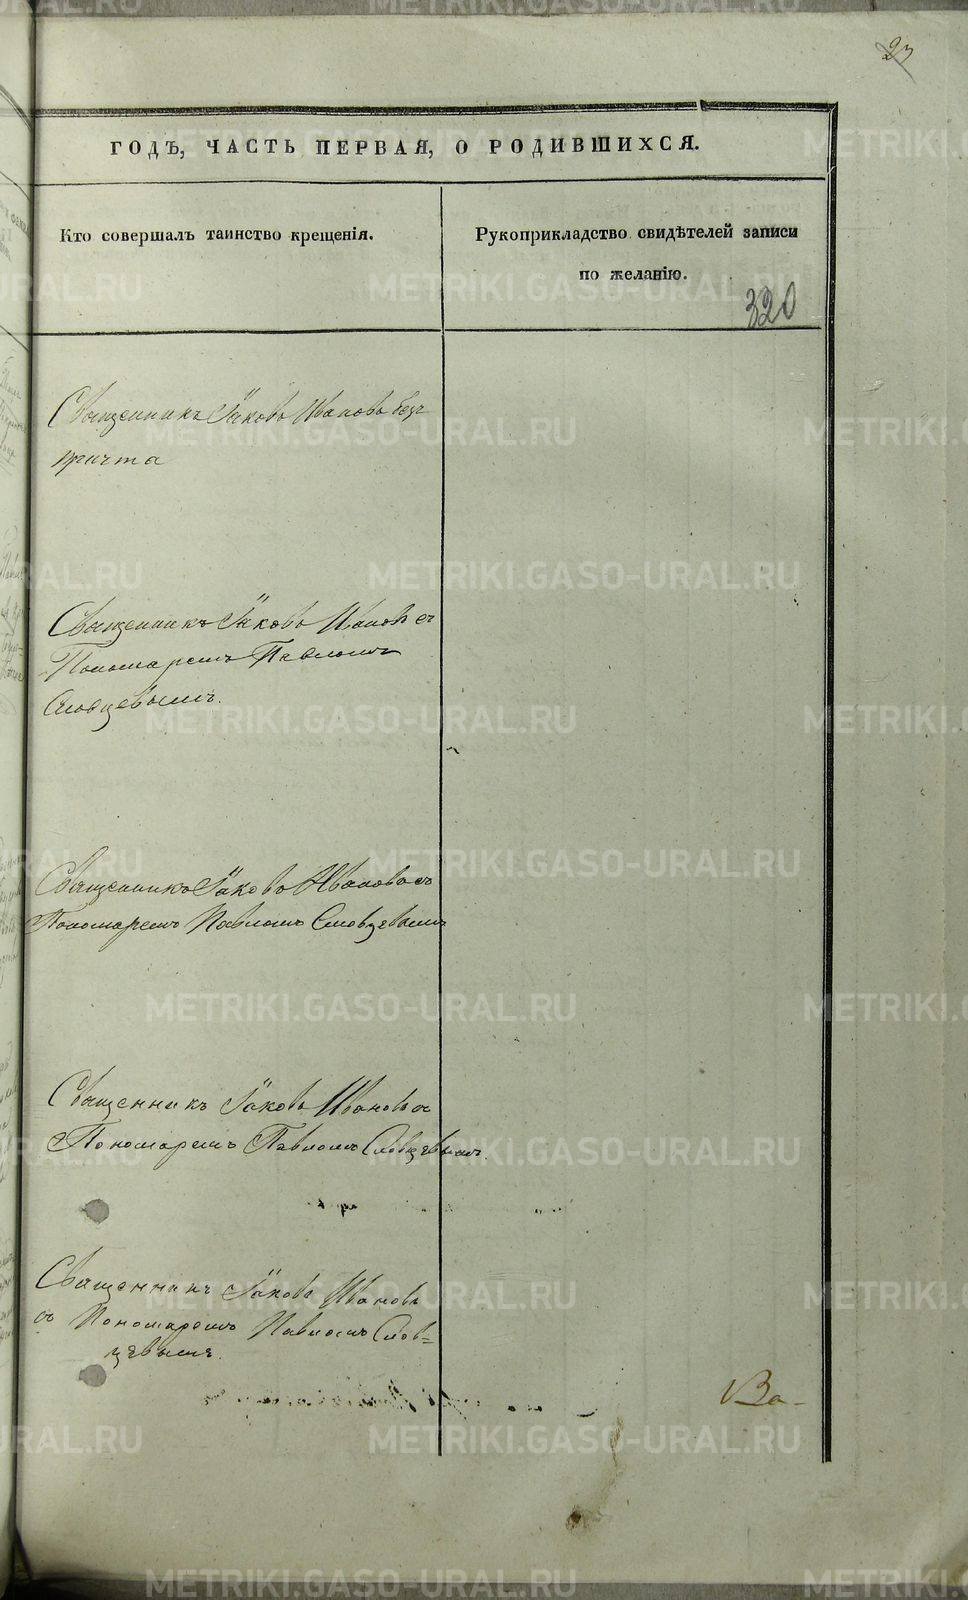 23
ГОДЪ, ЧАСТЬ ПЕРВАЯ, О РОДИВШИХСЯ.
Кто совершалъ таинство крещенія.
Рукоприкладство свидѣтелей записи
по желанію.
320
Священникъ Іаковъ Ивановъ безъ
причта
Священникъ Іаковъ Ивановъ съ
Пономаремъ Павломъ
Словцевымъ.
Священникъ Іаковъ Ивановъ съ
Пономаремъ Павломъ Словцевымъ
Священникъ Іаковъ Ивановъ съ
Пономаремъ Павломъ Словцевымъ.
Священникъ Іаковъ Ивановъ
съ Пономаремъ Павломъ Слов=
цевымъ.
Ва-
METRIKI.GASO-URAL.RU